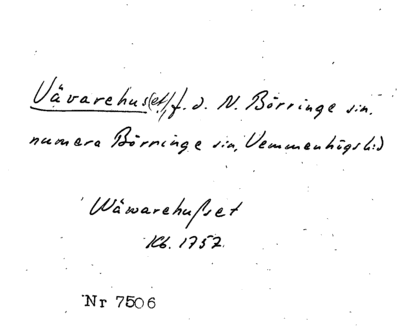 Vävarehus(et), f. d. N. Börringe sn.
numera Börringe sn, Vemmenhögs hd
Wäwarehusset
Kb. 1757.
Nr 7506